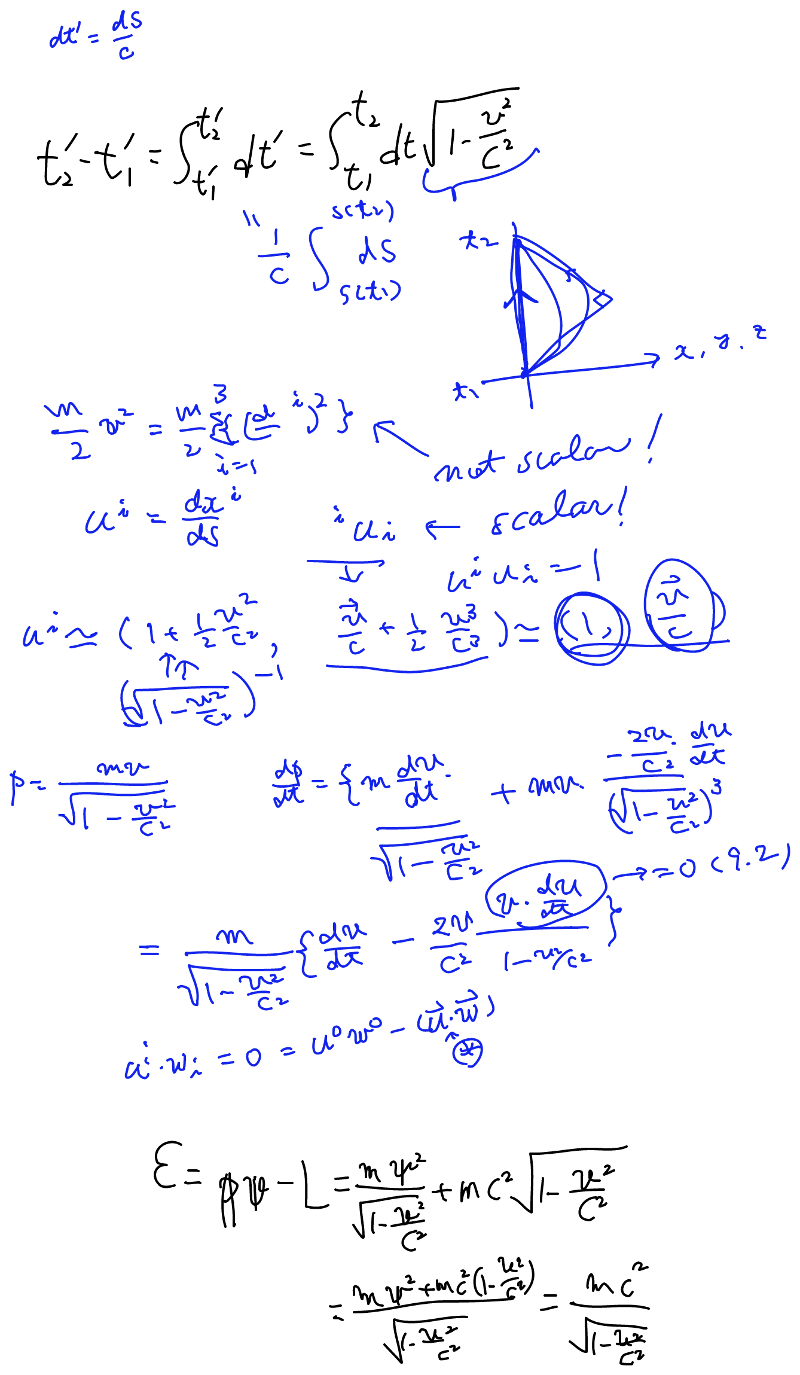 dt' = ds/c
t₂' - t₁' = ∫_{t₁'}^{t₂'} dt' = ∫_{t₁}^{t₂} dt √(1 - v²/c²)
" 1/c ∫_{s(t₁)}^{s(t₂)} ds
t₂
t₁ x, y, z
m/2 v² = m/2 Σ_{i=1}^{3} {(d i)²} ← not scalar!
uⁱ = dxⁱ/ds
ⁱ uᵢ ← scalar!
↓ uⁱ uᵢ = 1
uⁱ ≃ (1 + 1/2 v²/c², v⃗/c + 1/2 v³/c³) ≃ (1, v⃗/c)
↑↑
(√(1 - v²/c²))⁻¹
p = mv/√(1 - v²/c²) dp/dt = {m dv/dt · /√(1 - v²/c²) + mv · (-2v/c² · dv/dt)/(√(1 - v²/c²))³
= m/√(1 - v²/c²) {dv/dt - 2v/c² (v · dv/dt)/(1 - v²/c²)} → = 0 (9.2)
uⁱ · wᵢ = 0 = u⁰w⁰ - (u⃗ · w⃗)
ℰ = pv - L = mv²/√(1 - v²/c²) + mc² √(1 - v²/c²)
= (mv² + mc²(1 - v²/c²))/√(1 - v²/c²) = mc²/√(1 - v²/c²)